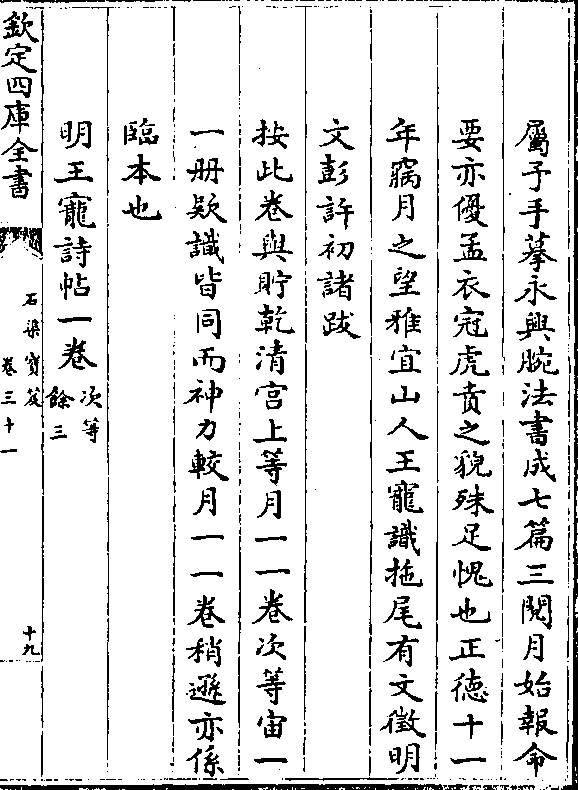 屬予手摹永興腕法書成七篇三閱月始報命
要亦優孟衣冠虎賁之貌殊足愧也正德十一
年窩月之望雅宜山人王寵識拖尾有文徵明
文彭許初諸跋
按此卷與貯乾清宫上等月一一卷次等宙一
一册欵識皆同而神力較月一一卷稍遜亦係
臨本也
明王寵詩帖一卷次等
餘三
欽定四庫全書
石渠寳笈
卷三十一
十九